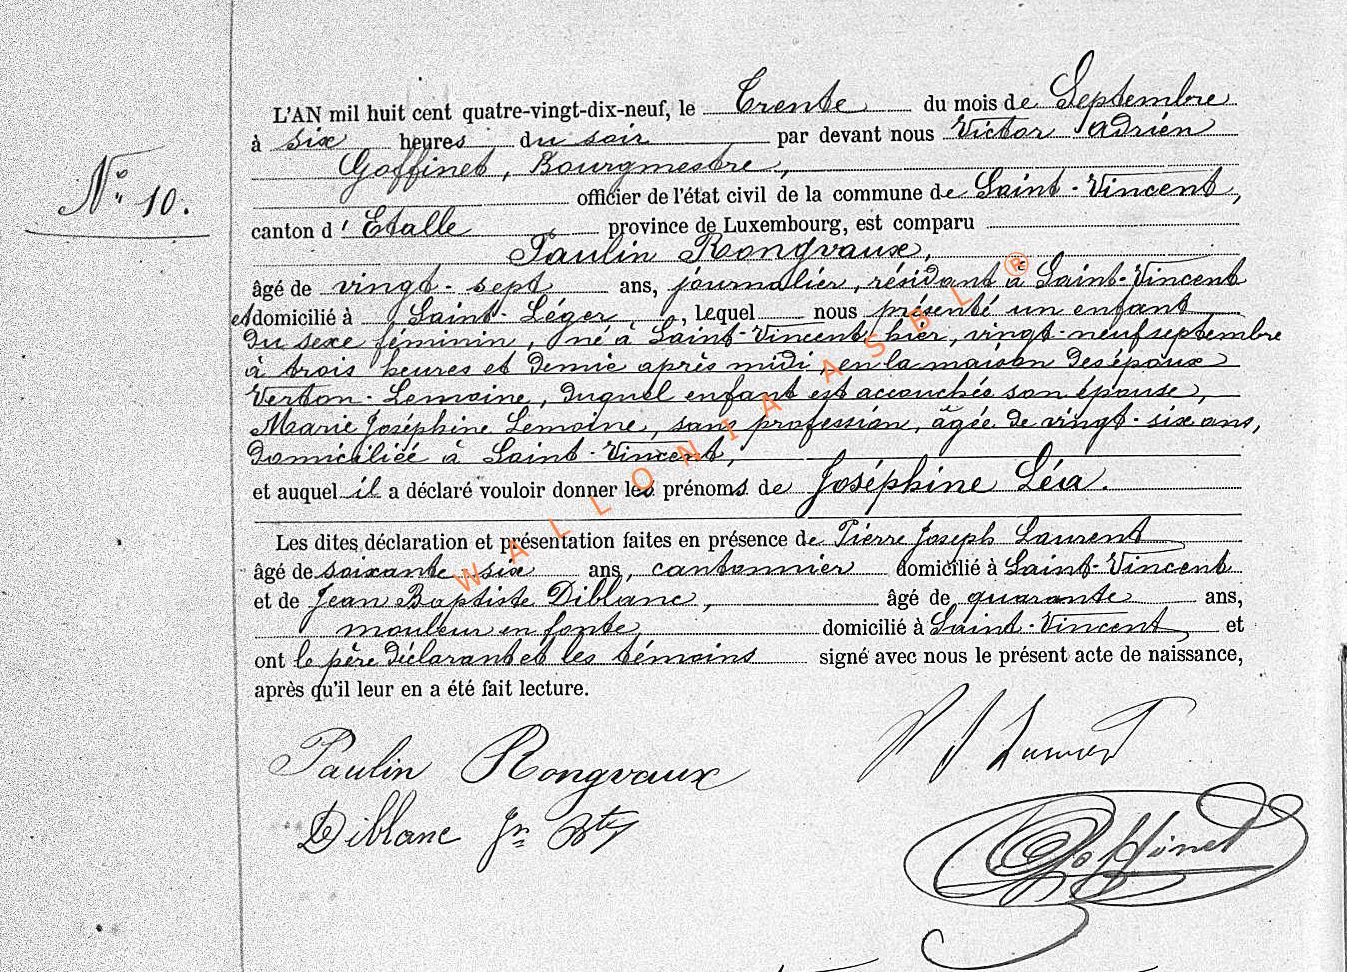 L'AN mil huit cent quatre-vingt-dix-neuf, le Trente du mois de Septembre
à six heures du soir par devant nous Victor Adrien
Goffinet, Bourgmestre,
N° 10.
officier de l'état civil de la commune de Saint-Vincent,
canton d'Etalle province de Luxembourg, est comparu
Paulin Rongvaux,
âgé de vingt-sept ans, journalier, résidant à Saint-Vincent
et domicilié à Saint-Léger, lequel nous présenté un enfant
du sexe féminin, né à Saint-Vincent, hier, vingt-neuf septembre
à trois heures et demie après midi, en la maison des époux
Verton-Lemoine, duquel enfant est accouchée son épouse,
Marie Joséphine Lemoine, sans profession, âgée de vingt-six ans,
domiciliée à Saint-Vincent,
et auquel il a déclaré vouloir donner les prénoms de Joséphine Léa.
Les dites déclaration et présentation faites en présence de Pierre Joseph Laurent
âgé de soixante six ans, cantonnier domicilié à Saint-Vincent
et de Jean Baptiste Diblanc, âgé de quarante ans,
mouleur en fonte, domicilié à Saint-Vincent, et
ont le père déclarant et les témoins signé avec nous le présent acte de naissance,
après qu'il leur en a été fait lecture.
P J Laurent
Paulin Rongvaux
Diblanc Jn Bte
Goffinet
WALLONIA ASBL ®